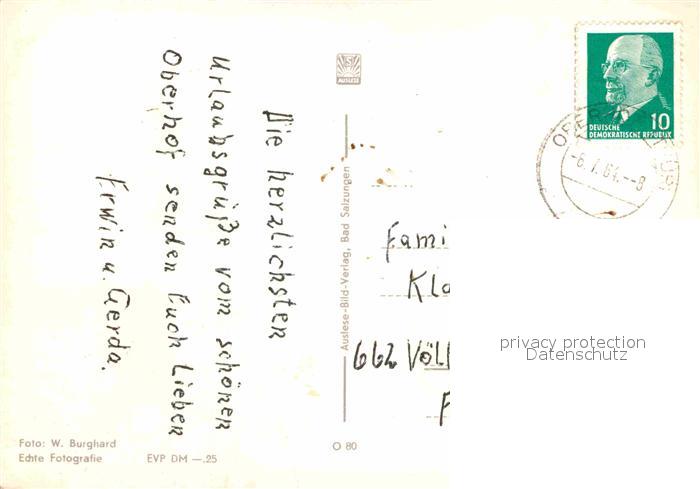 Die herzlichsten
Urlaubsgrüße vom schönen
Oberhof senden Euch Lieben
Erwin u. Gerda.
AUSLESE
Auslese-Bild-Verlag, Bad Salzungen
DEUTSCHE
DEMOKRATISCHE REPUBLIK
10
-6.7.64.--8
Fami
Klo
662 Völl
privacy protection
Datenschutz
Foto: W. Burghard
Echte Fotografie
EVP DM —.25
O 80